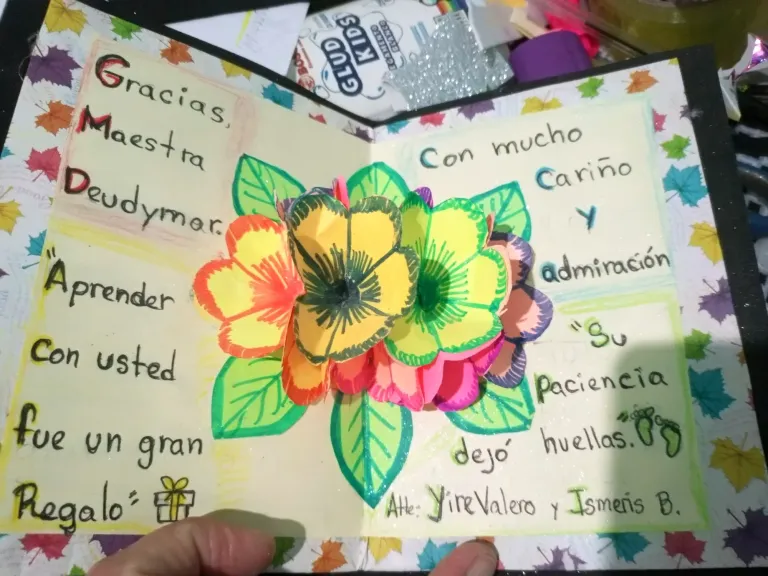 Gracias,
Maestra
Deudymar.
"Aprender
con usted
fue un gran
Regalo"
Con mucho
Cariño
y
admiración
"Su
paciencia
dejó huellas."
Atte: Yire Valero y Ismeris B.
GLUD
KIDS